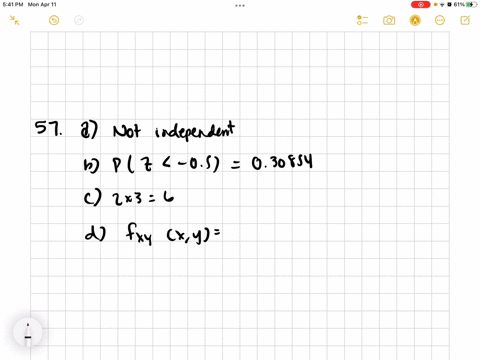 5:41 PM Mon Apr 11
61%
57. a) Not independent
b) P(Z < -0.5) = 0.30854
c) 2x3 = 6
d) fxy (x,y) =